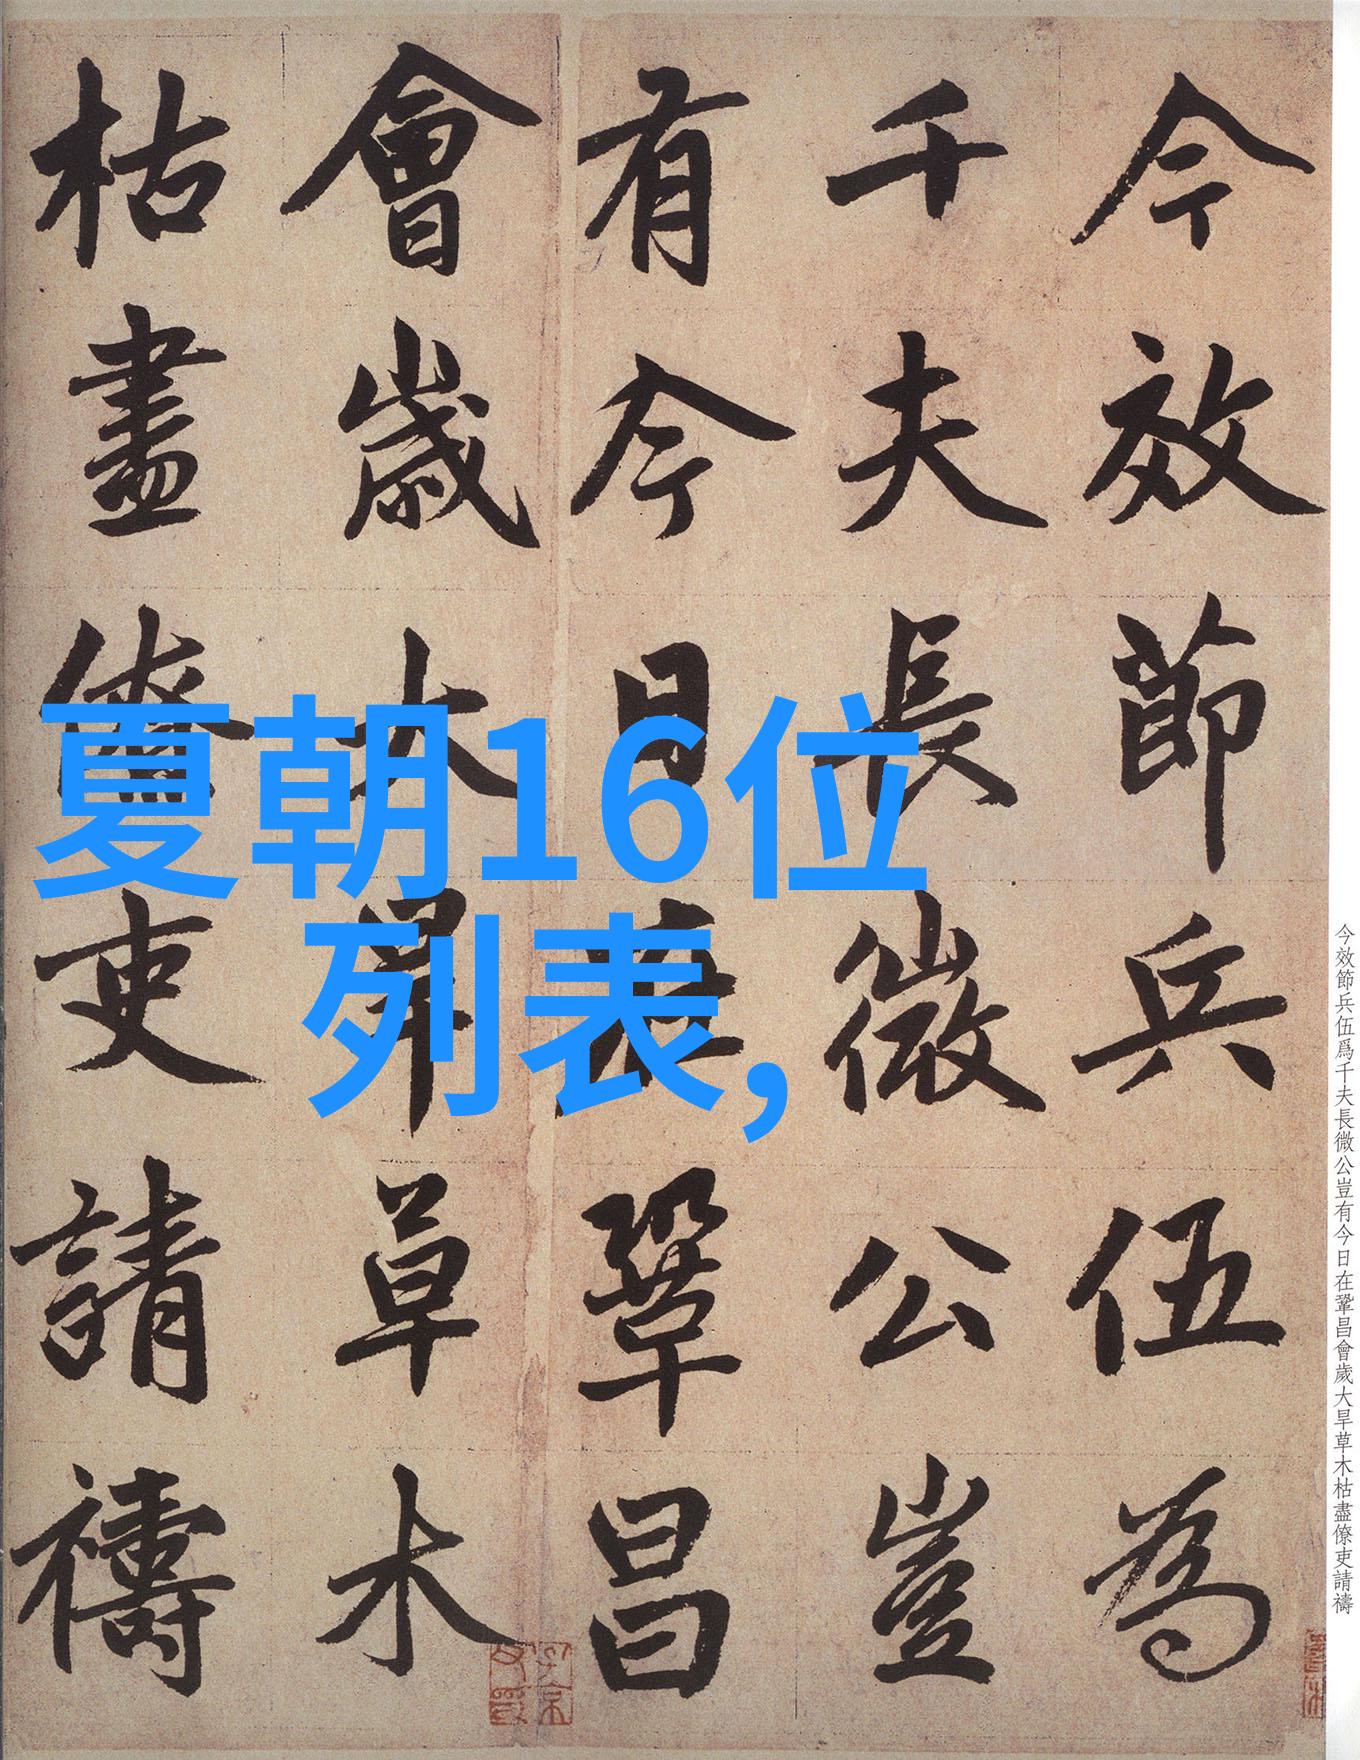 今效節兵伍為
千夫長微公豈
有今日在鞏昌
會歲大旱草木
枯盡僚吏請禱
夏朝16位
列表,
今效節兵伍爲千夫長微公豈有今日在鞏昌會歲大旱草木枯盡僚吏請禱